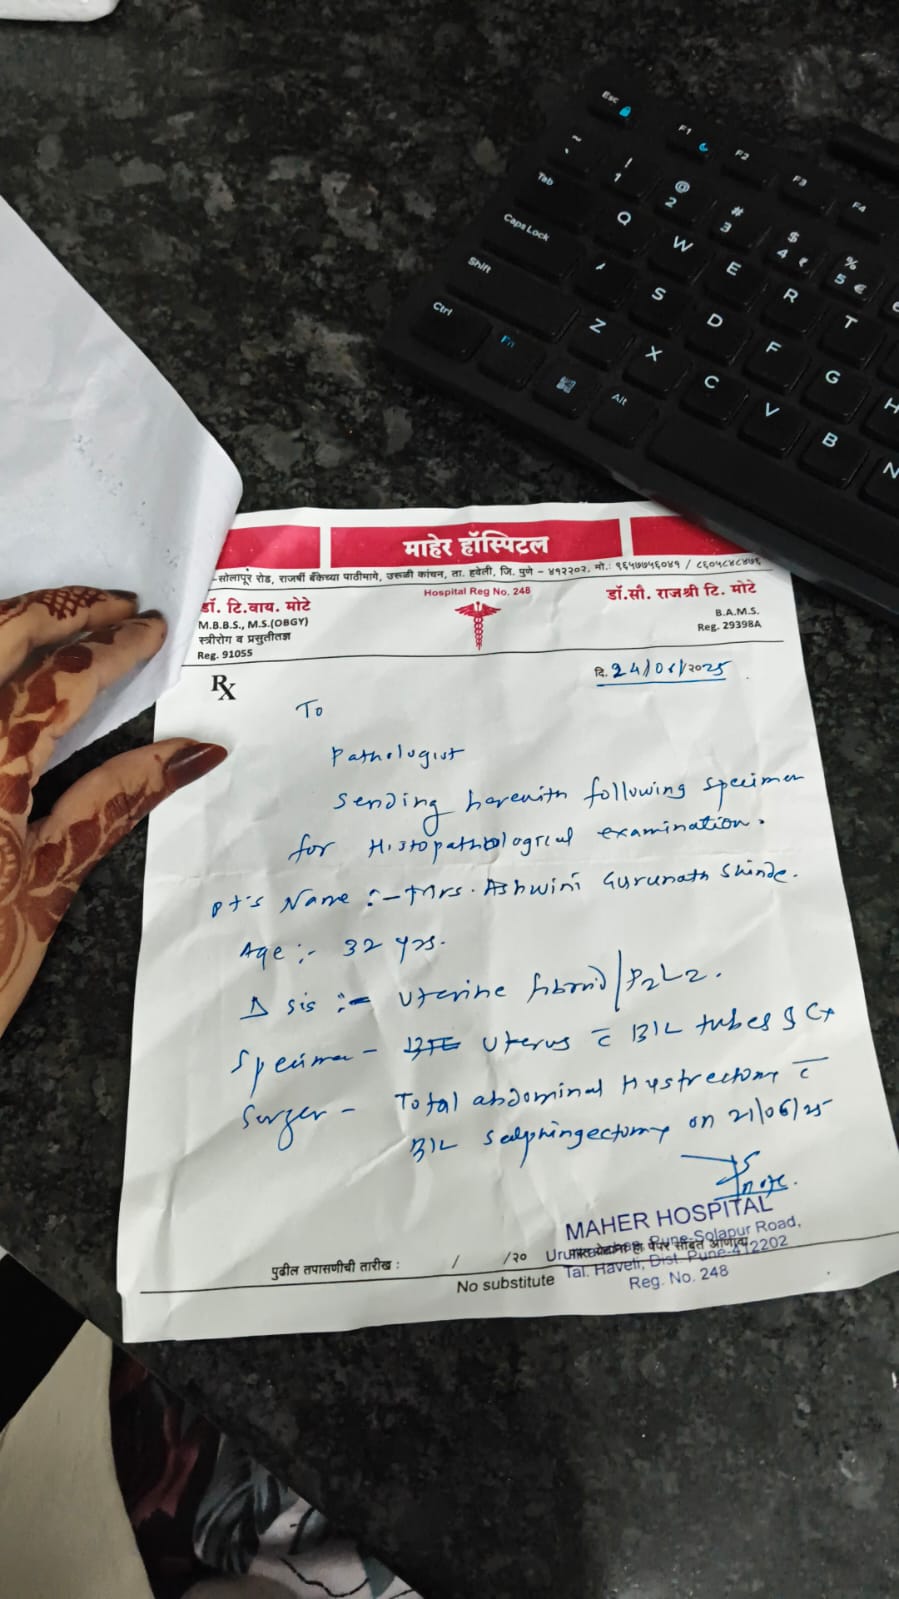 Esc F1 F2 F3 F4
~ ` ! 1 @ 2 # 3 $ 4 ₹ % 5 €
Tab Q W E R T
Caps Lock S D F G H
Shift Z X C V B N
Ctrl Fn Alt
माहेर हॉस्पिटल
-सोलापूर रोड, राजर्षी बँकेच्या पाठीमागे, उरूळी कांचन, ता. हवेली, जि. पुणे - ४१२२०२, मो.: ९६५७७५६०४१ / ८६०५८४८४७६
Hospital Reg No. 248
डॉ. टि.वाय. मोटे
M.B.B.S., M.S.(OBGY)
स्त्रीरोग व प्रसुतीतज्ञ
Reg. 91055
डॉ.सौ. राजश्री टि. मोटे
B.A.M.S.
Reg. 29398A
दि. 24/06/२०25
Rx
To
Pathologist
Sending herewith following specimen
for Histopathological examination.
Pt's Name :- Mrs. Ashwini Gurunath Shinde.
Age :- 32 yrs.
Δ sis :- Uterine fibroid / P2L2.
Specimen - Uterus c̄ B/L tubes & Cx
Surger - Total abdominal Hystrectomy c̄
B/L Salphingectomy on 21/06/25
MAHER HOSPITAL
Uruli Kanchan, Pune-Solapur Road,
Tal. Haveli, Dist. Pune-412202
Reg. No. 248
पुढील तपासणीची तारीख : / /२०
हा पेपर सोबत आणावा
No substitute